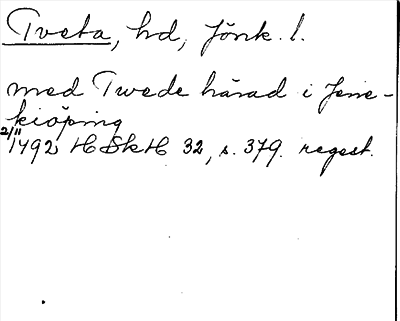 Tveta, hd, Jönk. l.
med Twede härad i Jene-
kiöping
2/11 1492 HSkH 32, s. 379. regest.